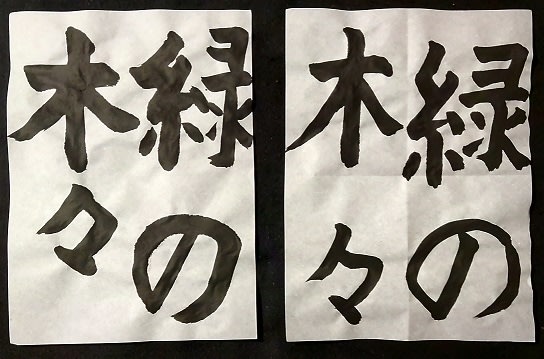 緑の
木々
緑の
木々